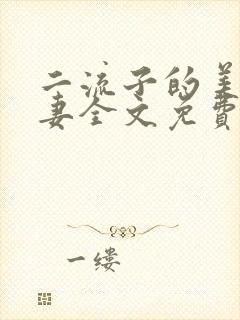 二流子的美
妻全文免費
一缕